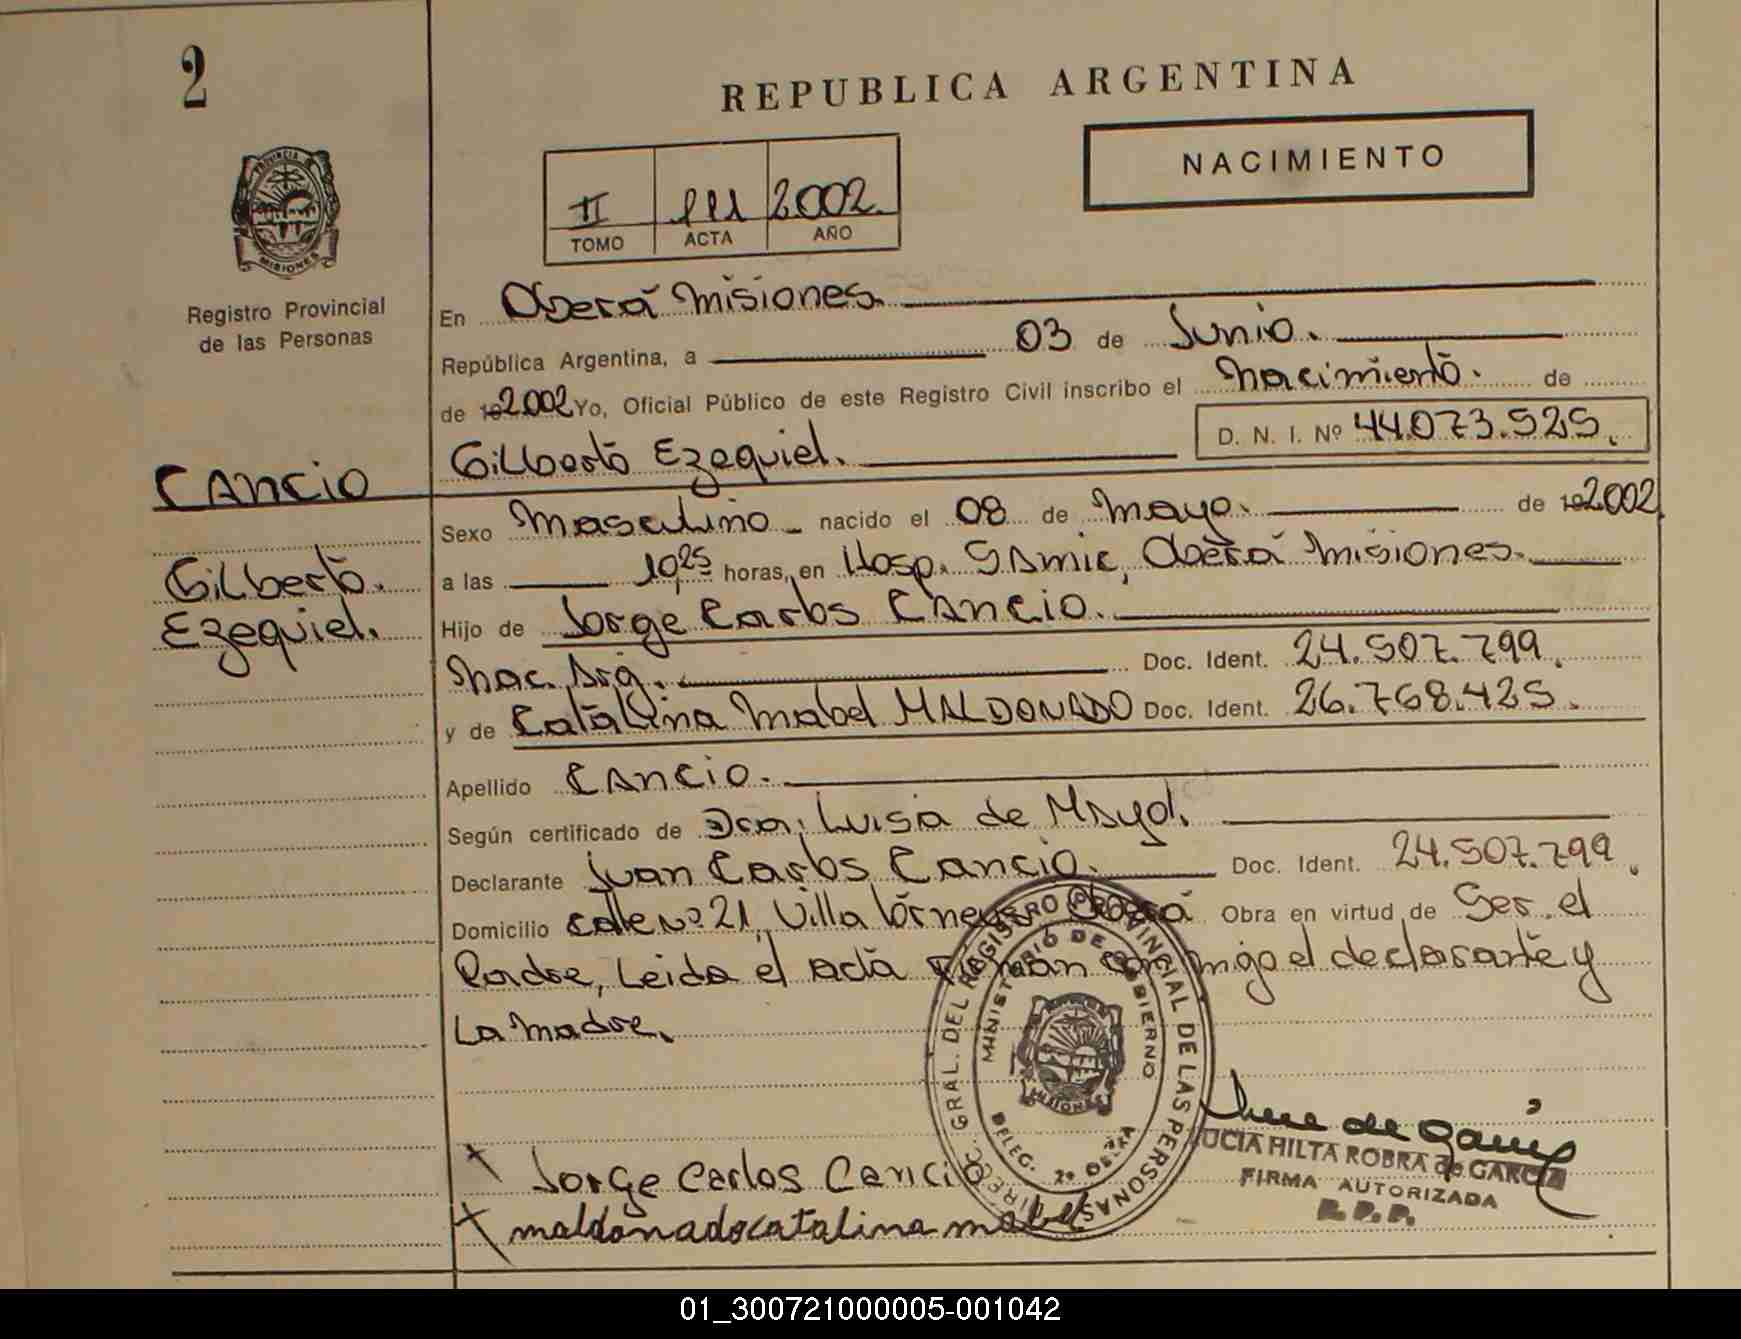 2
REPUBLICA ARGENTINA
NACIMIENTO
II 111 2002.
TOMO ACTA AÑO
PROVINCIA
MISIONES
Registro Provincial
de las Personas
En Oberá Misiones.
República Argentina, a 03 de Junio.
de 192002 Yo, Oficial Público de este Registro Civil inscribo el Nacimiento. de
Gilberto Ezequiel. D. N. I. Nº 44.073.525.
CANCIO
Gilberto.
Ezequiel.
Sexo Masculino nacido el 08 de Mayo. de 192002
a las 10,25 horas, en Hosp. SAmic, Oberá Misiones.
Hijo de Jorge Carlos CANCIO.
Nac. Arg. Doc. Ident. 24.507.799.
y de Catalina Mabel MALDONADO Doc. Ident. 26.768.425.
Apellido CANCIO.
Según certificado de Dra, Luisa de Mayol.
Declarante Juan Carlos Cancio. Doc. Ident. 24.507.799.
Domicilio calle Nº 21, Villa Oberá Obra en virtud de Ser el
Padre, Leida el acta firman conmigo el declarante y
La Madre.
DIREC. GRAL. DEL REGISTRO PROVINCIAL DE LAS PERSONAS
MINISTERIO DE GOBIERNO
MISIONES
DELEG. 2º OBERA
LUCIA HILTA ROBRA de GARCIA
FIRMA AUTORIZADA
R.P.P.
x Jorge Carlos Cancio
x maldonado catalina mabel
01_300721000005-001042